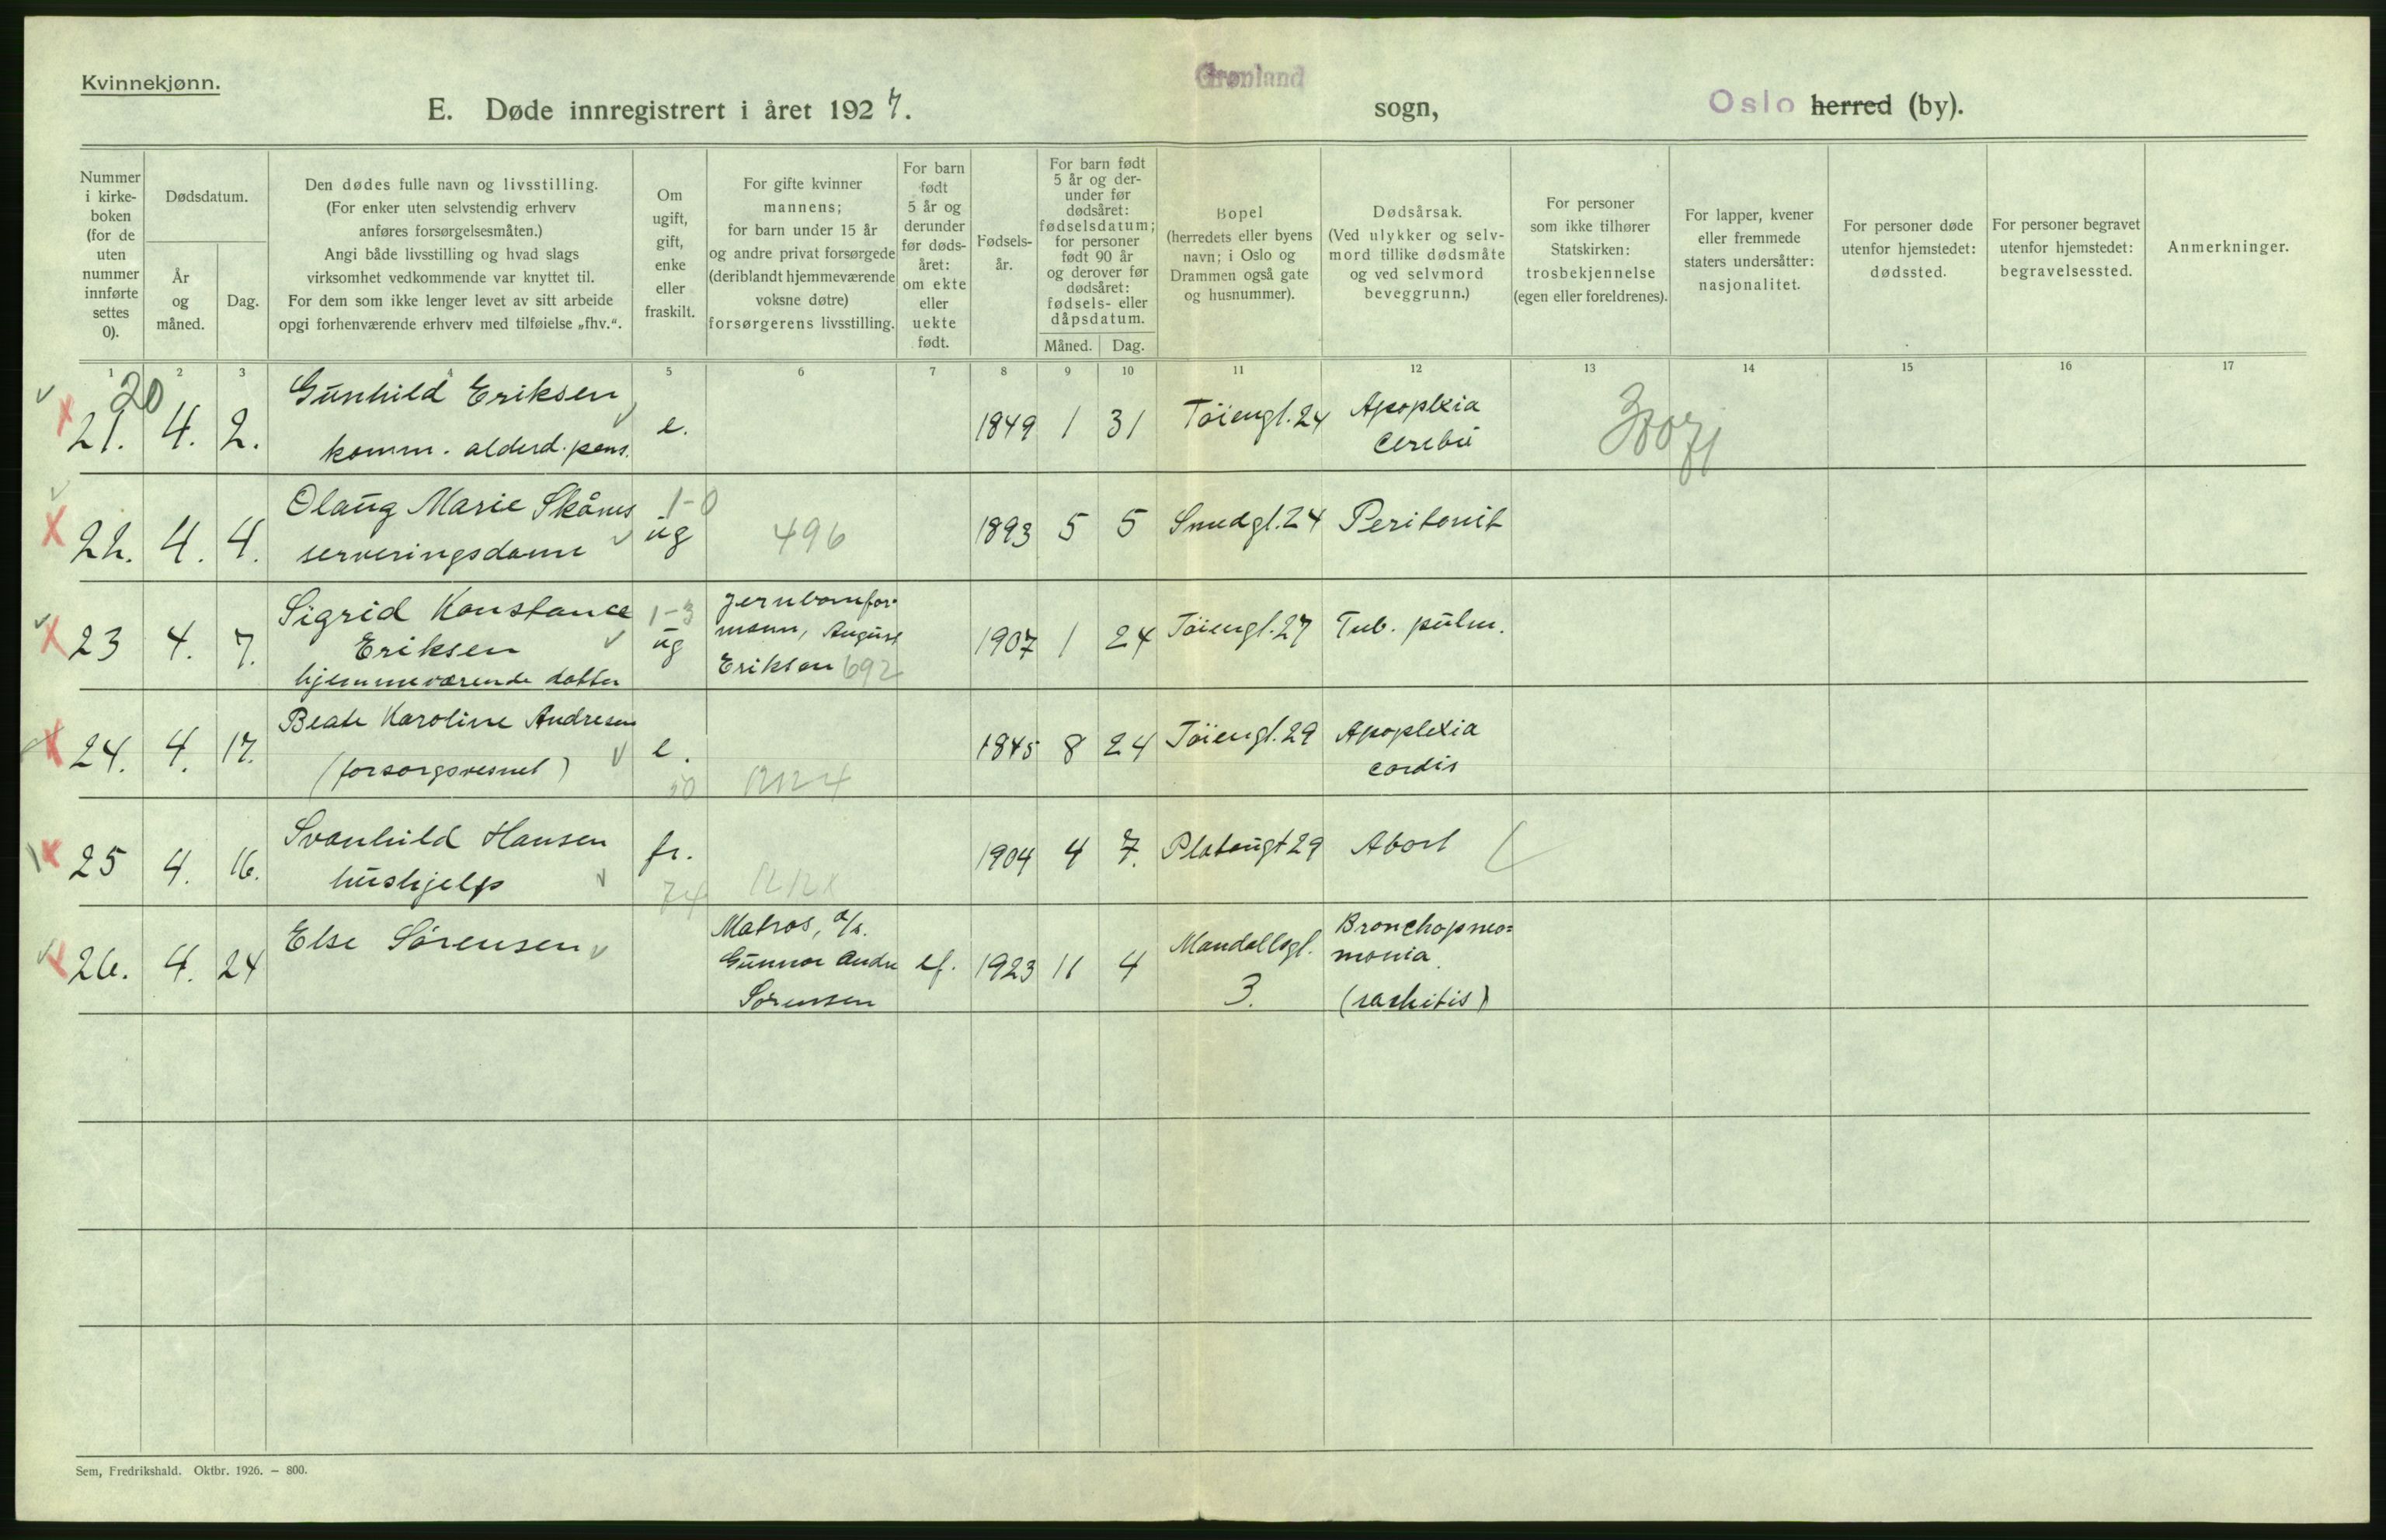 Kvinnekjønn.
E. Døde innregistrert i året 1927.
Grønland
sogn,
Oslo herred (by).
Nummer i kirke-boken (for de uten nummer innførte settes 0).
Dødsdatum.
År og måned.
Dag.
Den dødes fulle navn og livsstilling.
(For enker uten selvstendig erhverv
anføres forsørgelsesmåten.)
Angi både livsstilling og hvad slags
virksomhet vedkommende var knyttet til.
For dem som ikke lenger levet av sitt arbeide
opgi forhenværende erhverv med tilføielse „fhv.“.
Om
ugift,
gift,
enke
eller
fraskilt.
For gifte kvinner
mannens;
for barn under 15 år
og andre privat forsørgede
(deriblandt hjemmeværende
voksne døtre)
forsørgerens livsstilling.
For barn
født
5 år og
derunder
før døds-
året:
om ekte
eller
uekte
født.
Fødsels-
år.
For barn født
5 år og der-
under før
dødsåret:
fødselsdatum;
for personer
født 90 år
og derover før
dødsåret:
fødsels- eller
dåpsdatum.
Måned.
Dag.
Bopel
(herredets eller byens
navn; i Oslo og
Drammen også gate
og husnummer).
Dødsårsak.
(Ved ulykker og selv-
mord tillike dødsmåte
og ved selvmord
beveggrunn.)
For personer
som ikke tilhører
Statskirken:
trosbekjennelse
(egen eller foreldrenes).
For lapper, kvener
eller fremmede
staters undersåtter:
nasjonalitet.
For personer døde
utenfor hjemstedet:
dødssted.
For personer begravet
utenfor hjemstedet:
begravelsessted.
Anmerkninger.
1 2 3 4 5 6 7 8 9 10 11 12 13 14 15 16 17
20
21. 4. 2. Gunhild Eriksen e. 1849 1 31 Tøiengt. 24 Apoplexia
komm. alderd. pens. cerebri
22. 4. 4. Olaug Marie Skånes 1-0 ug 496 1893 5 5 Smedgt. 24 Peritonit
serveringsdame
23 4. 7. Sigrid Konstance 1-3 ug Jernbanefor- 1907 1 24 Tøiengt. 27 Tub. pulm.
Eriksen mann, August
hjemmeværende datter Eriksen 692
24. 4. 17. Beate Karoline Andresen e. 1845 8 24 Tøiengt. 29 Apoplexia
(forsorgsvesnet) cordis
25 4. 16. Svanhild Hansen fr. 1904 4 7. Platougt 29 Abort
hushjelp 74
26. 4. 24 Else Sørensen Matros, a/s. ef. 1923 11 4 Mandallsgt. Bronchopneu=
Gunnar Andr monia
Sørensen 3. (rachitis)
Sem, Fredrikshald. Oktbr. 1926. — 800.